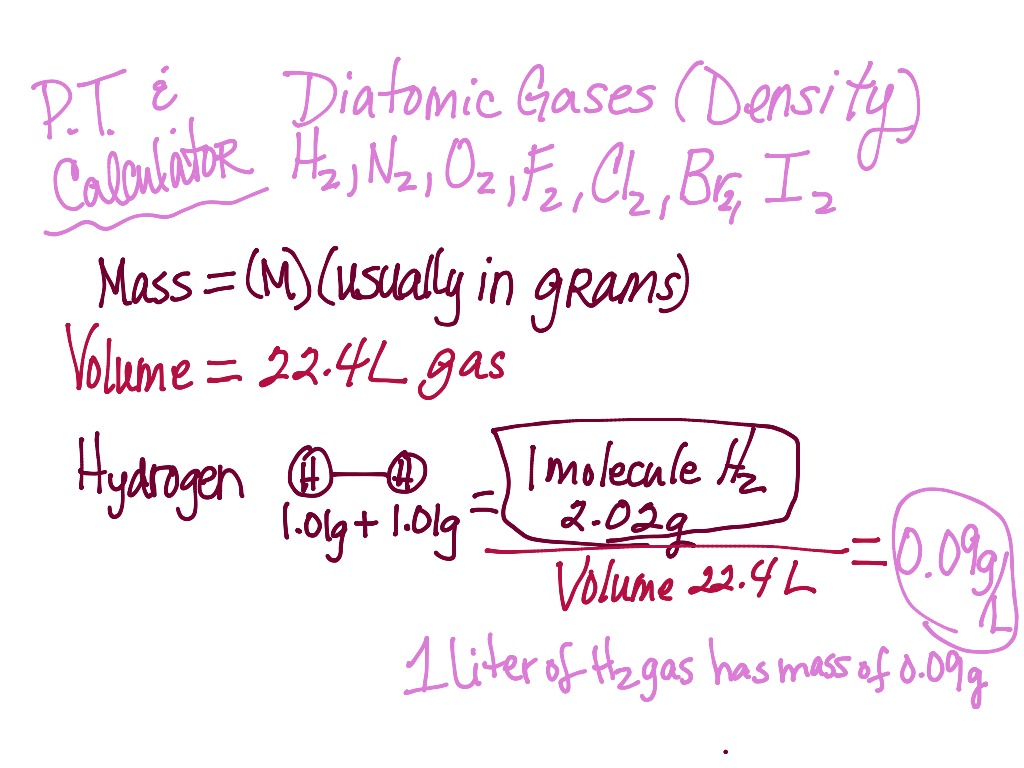 P.T. &
Calculator
Diatomic Gases (Density)
H₂, N₂, O₂, F₂, Cl₂, Br₂, I₂
Mass = (M) (usually in grams)
Volume = 22.4L gas
Hydrogen H—H = 1 molecule H₂
1.01g + 1.01g 2.02g
Volume 22.4 L = 0.09g/L
1 Liter of H₂ gas has mass of 0.09g